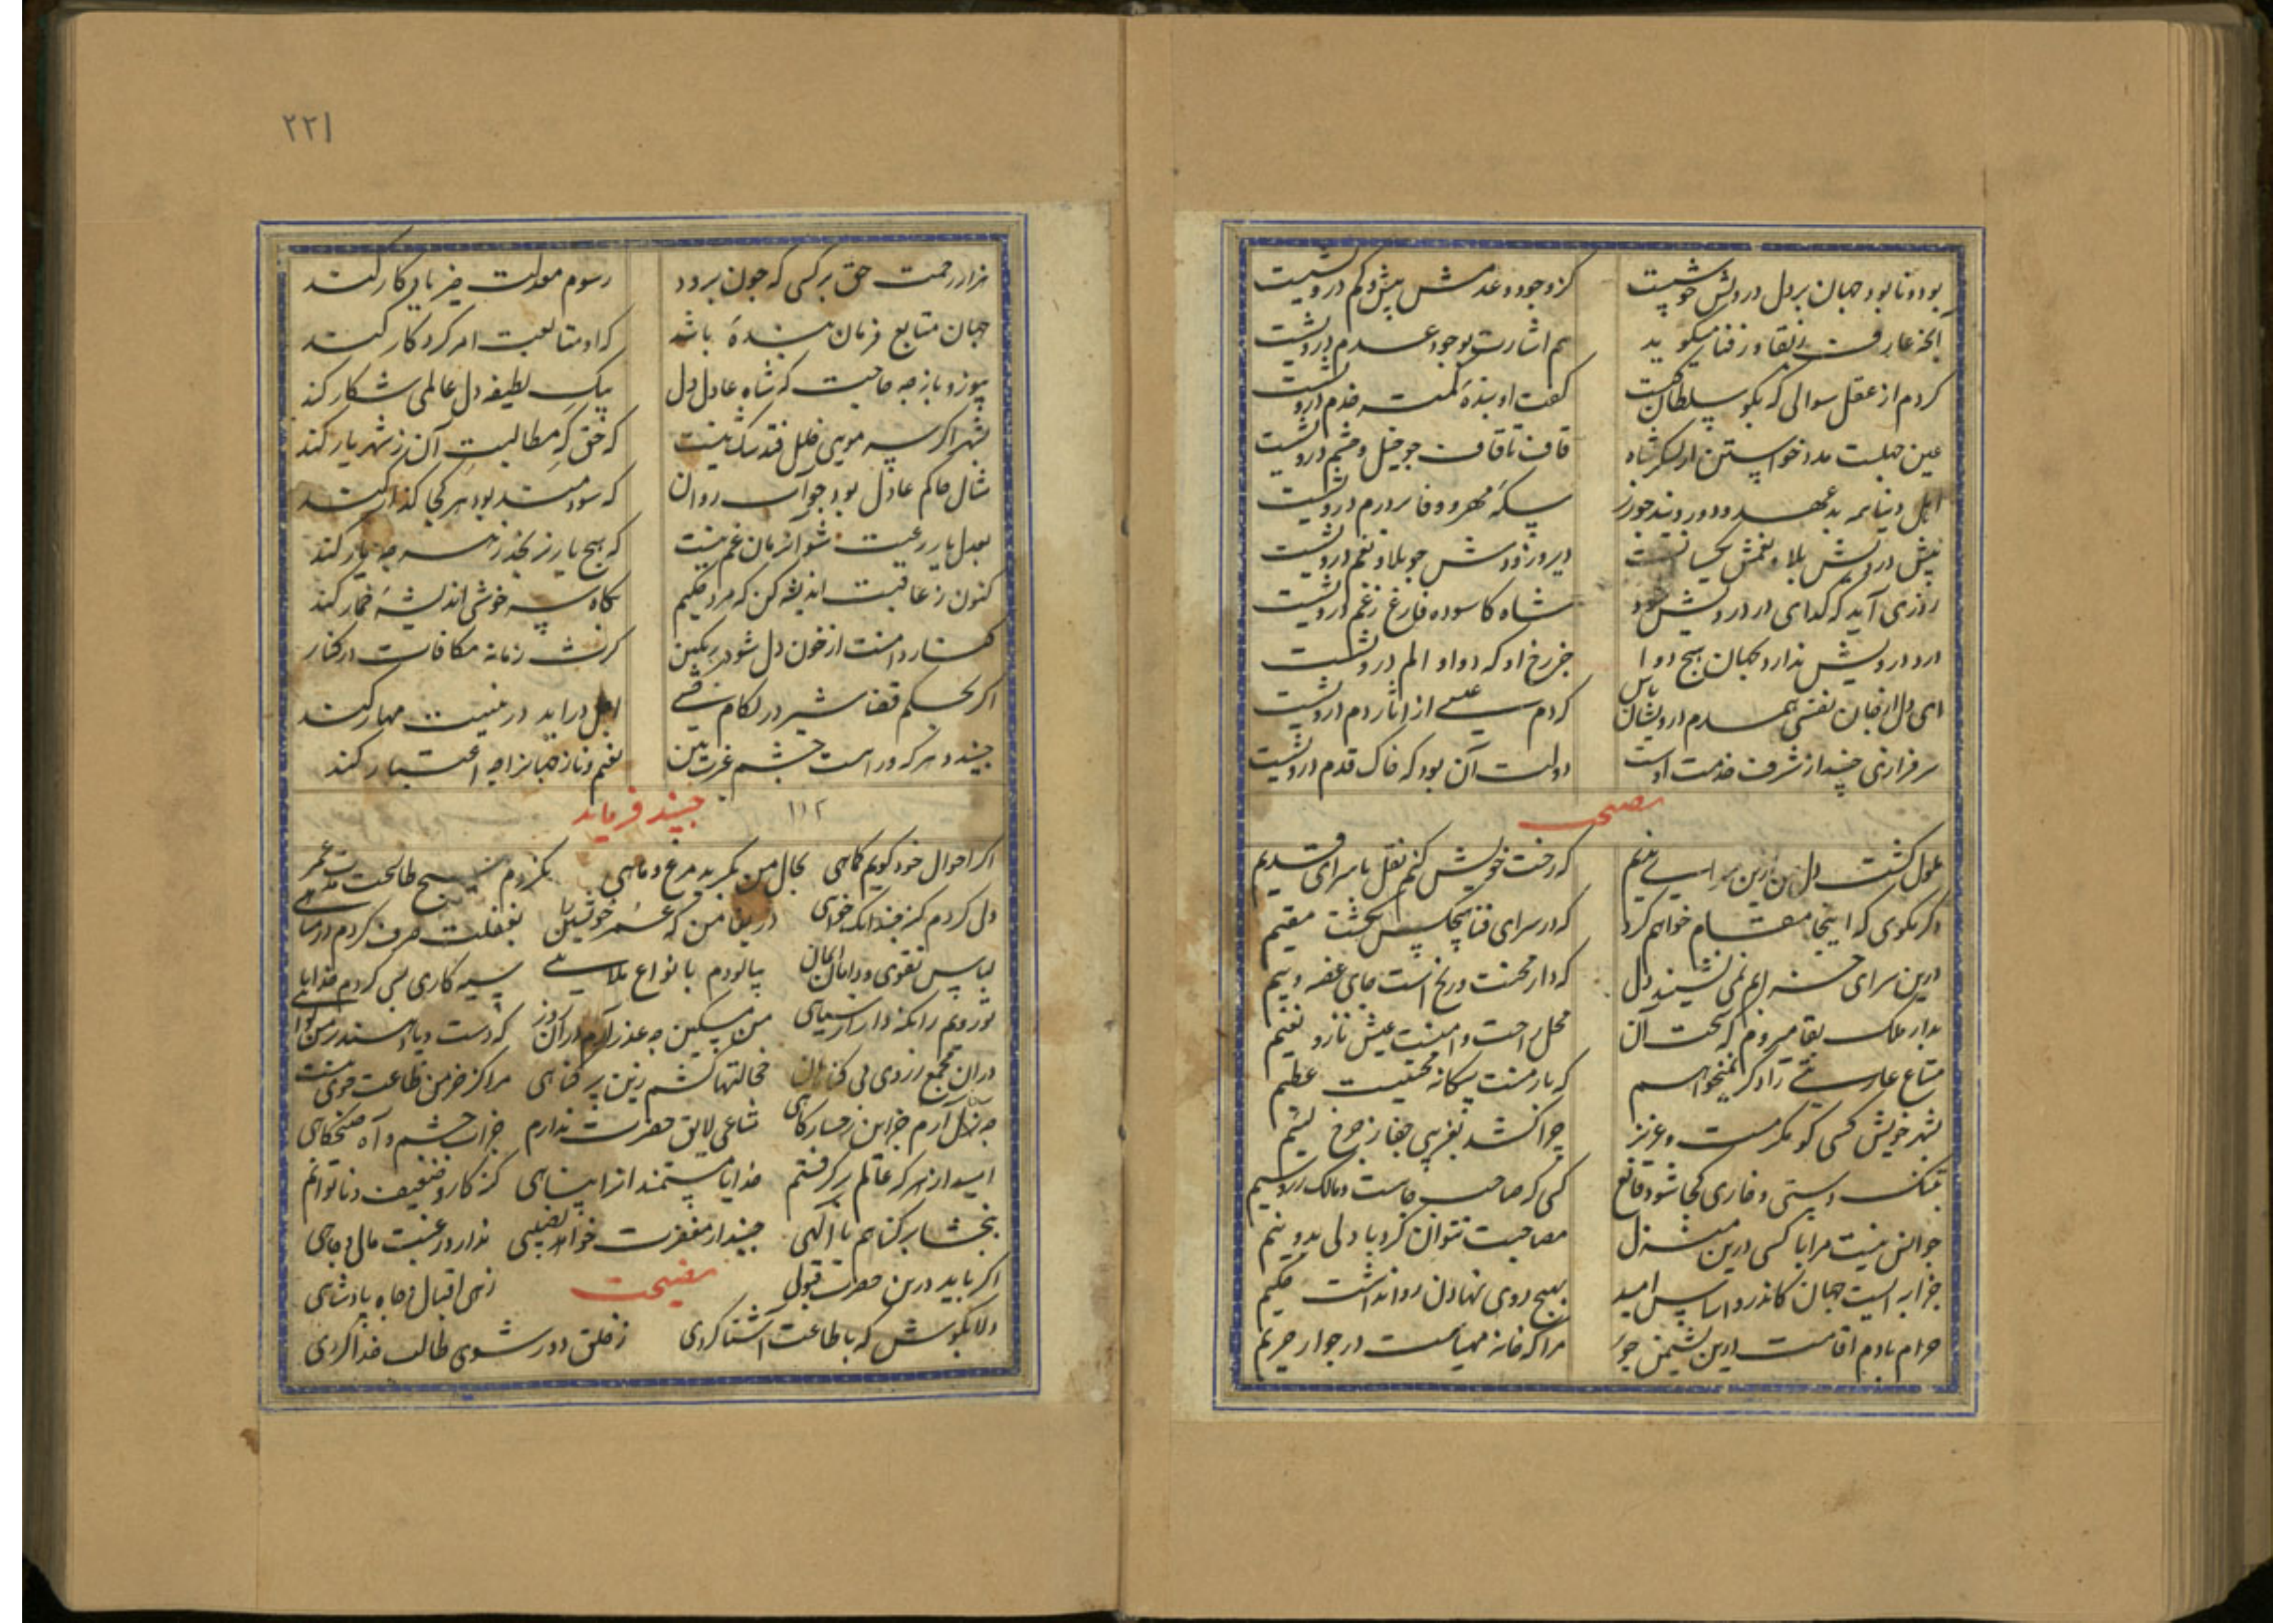 بود و نابود جهان بر دل درویش خوشست کز وجود و عدمش بیش و کم درویشیست
آنچه عارف ز بقا و ز فنا میگوید هم اشارت بوجود عدم درویشیست
کردم از عقل سوالی که بگو سلطان کیست گفت او بنده کمت خدم درویشیست
عین جهلست مدد خواستن از لشکر شاه قاف تا قاف چو خیل و حشم درویشیست
اهل دنیا همه بد عهد و دورویند چو زر سکه مهر و وفا بر درم درویشیست
پیش درویش بلا و نعمش یکسانست دیر و زودش چو بلا و نعم درویشیست
روزی آید که گدای در درویش شود شاه کاسوده فارغ ز غم درویشیست
درد درویش ندارد بجهان هیچ دوا جز رخ او که دوا و الم درویشیست
ای دل از جان نفسی همدم درویشان باش کردم عیسی از آثار دم درویشیست
سرفرازی جنید از شرف خدمت اوست دولت آن بود که خاک قدم درویشیست
نصیحت
ملول گشت دل من زین سرای سیم که رخت خویش کنم نقل با سرای قدیم
دگر مگوی که اینجا مقام خواهم کرد که در سرای فنا هیچکس نگشت مقیم
درین سرای خرابم نمی نشیند دل که دار محنت و رنج است جای غصه و بیم
بدار ملک بقا میروم که تخت آن محل راحت و امنست عیش ناز و نعیم
متاع عاریتی را دگر نمیخواهم که بار منت بیگانه محنتیست عظیم
بشهر خویش کسی کو مکرمست و عزیز چرا کشد بغریبی جفا ز چرخ لئیم
بتنک دستی و خاری کجا شود قانع کسی که صاحب جاست و مالک زر و سیم
چو انس نیست مرا با کسی درین منزل مصاحبت نتوان کرد با دلی بدو نیم
خرابه ایست جهان کاندرو اساس امید بهیچ روی نهادن روا نداشت حکیم
حرام بادم اقامت درین نشیمن جو مرا که خانه مهیاست در جوار حریم
۲۲۱
هزار رحمت حق بر کسی که چون برود رسوم معدلت خیر یادگار کند
جهان متابع فرمان بنده باشد که او متابعت امر کردگار کند
بیوز و باز چه حاجت که شاه عادل دل بیک لطیفه دل عالمی شکار کند
بشهر اگر سر مویی خلل فتد شک نیست که حق مطالبت آن ز شهریار کند
مثال حاکم عادل بود چو آب روان که سودمند بود هر کجا گذار کند
بعدل یار رعیت شو آنزمان غم نیست که هیچ یار ز بد چه یار کند
کنون ز عاقبت اندیشه کن که مرد حکیم بگاه سر خوشی اندیشه خمار کند
کنار دامنت از خون دل شود رنگین گرت زمانه مکافات در کنار
اگر بحکم قضا شیر در لکام کشی اجل دراید در بینیت مهار کند
جنید هر که ورا است چشم عبرت بین نعیم و ناز جهانرا چه اعتبار کند
۱۱۲ جنید فرماید
اگر احوال خود گویم کماهی بحال من بگرید مرغ و ماهی نکردم هیچ طاعت عمر
دل کردم گنه چندانکه خواهی دریغا من که عمر خویشتن را بغفلت صرف کردم در مناهی
لباس تقوی و دامان ایمان بیالودم بانواع ملاهی سیه کاری بسی کردم خدایا
تو رویم را نگه دار از سیاهی من مسکین چه عذر آرم در آن روز که دست و پا دهند بر من گواهی
در آن مجمع ز روی بی گناهان خجالتها کشم زین پر گناهی مرا کز خرمن طاعت جوی نیست
چه حاصل آرم جز این رخسار کاهی متاعی لایق حضرت ندارم جز آب چشم و آه صبحگاهی
امید از هر که عالم بر گرفتم خدایا مستمند انرا پناهی گنه کار و ضعیف و ناتوانم
ببخشا بر گناهم یا الهی جنید از مغفرت خواهد نصیبی ندارد رغبت مالی و جاهی
اگر یابد درین حضرت قبولی زهی اقبال و جاه پادشاهی
نصیحت
دلا بکوش که با طاعت آشنا گردی ز خلق دور شوی طالب خدا گردی